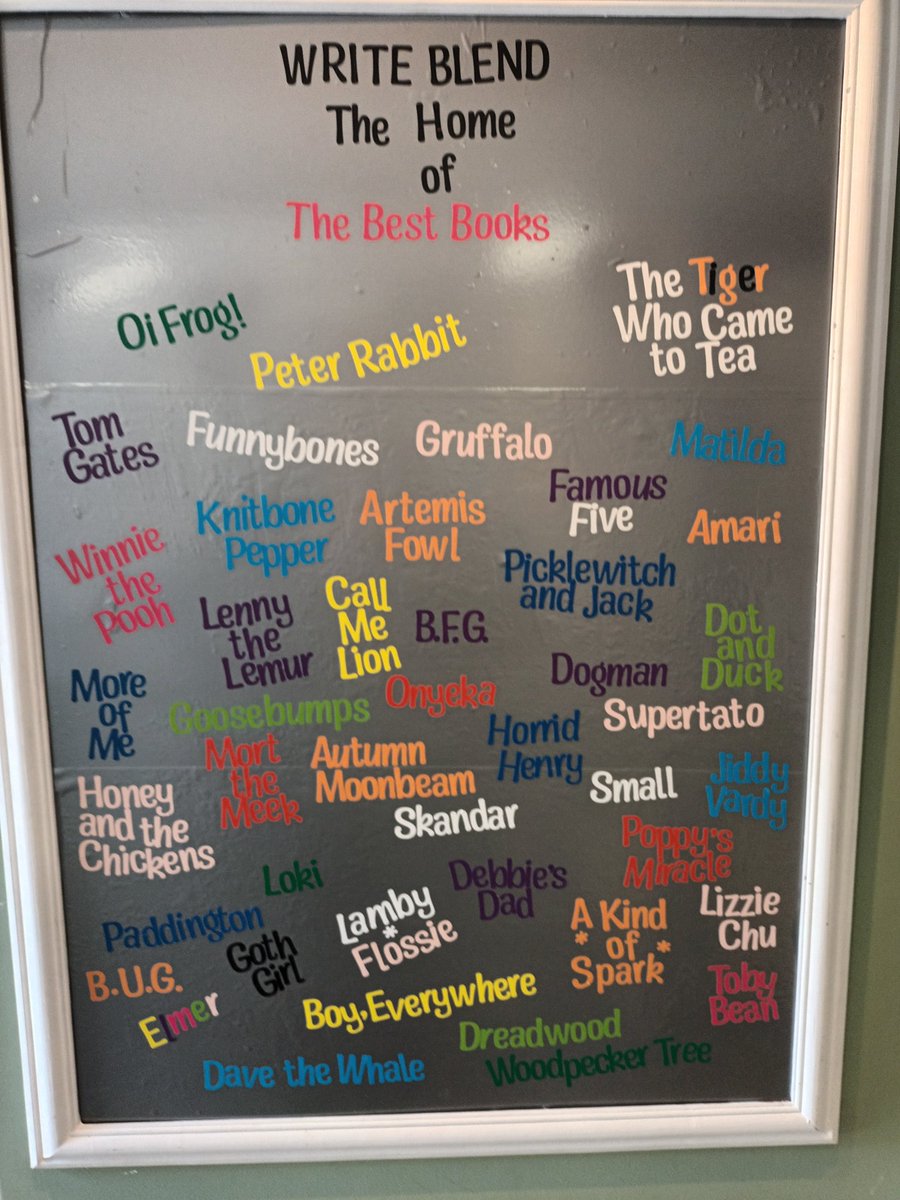 WRITE BLEND
The Home
of
The Best Books
Oi Frog!
Peter Rabbit
The Tiger
Who Came
to Tea
Tom
Gates
Funnybones
Gruffalo
Matilda
Winnie
the
Pooh
Knitbone
Pepper
Artemis
Fowl
Famous
Five
Amari
Lenny
the
Lemur
Call
Me
Lion
B.F.G.
Picklewitch
and Jack
Dot
and
Duck
More
of
Me
Goosebumps
Onyeka
Dogman
Supertato
Mort
the
Meek
Autumn
Moonbeam
Horrid
Henry
Small
Jiddy
Vardy
Honey
and the
Chickens
Skandar
Poppy's
Miracle
Loki
Debbie's
Dad
Paddington
Goth
Girl
Lamby
*
Flossie
A Kind
* of *
Spark
Lizzie
Chu
B.U.G.
Elmer
Boy,Everywhere
Toby
Bean
Dreadwood
Dave the Whale
Woodpecker Tree